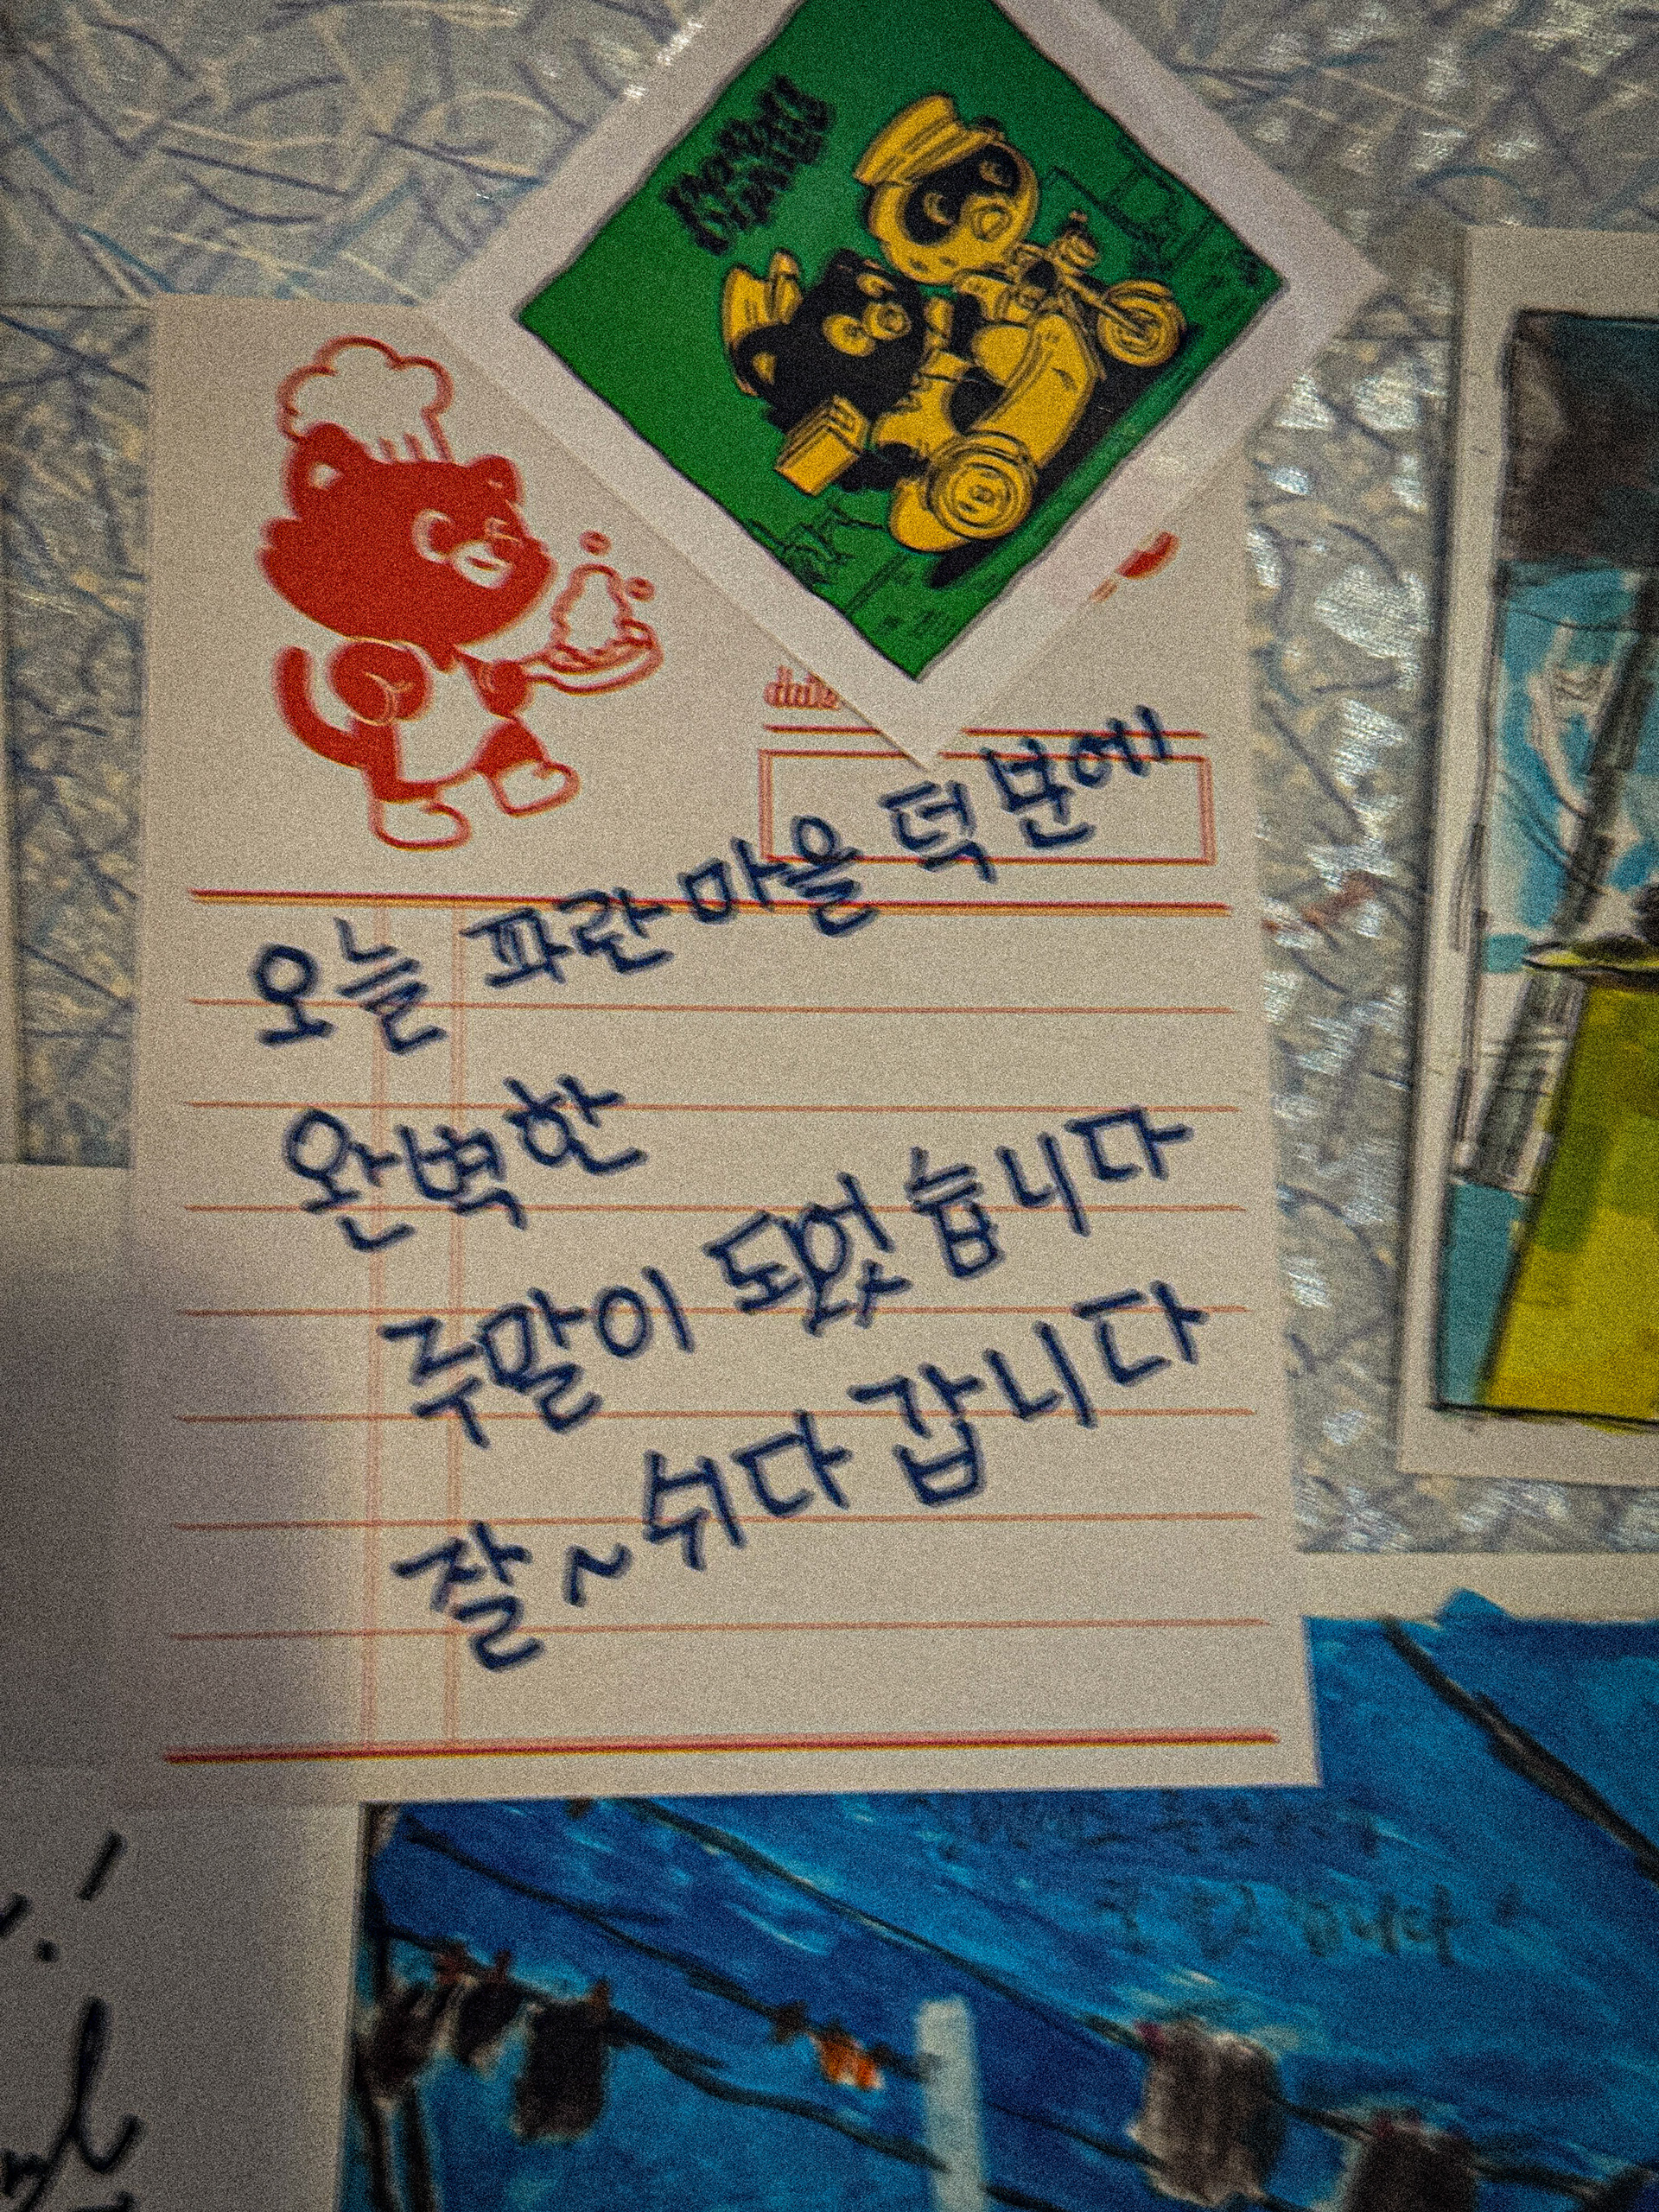 date
오늘 파란마을 덕분에
완벽한
주말이 되었습니다
잘~쉬다 갑니다